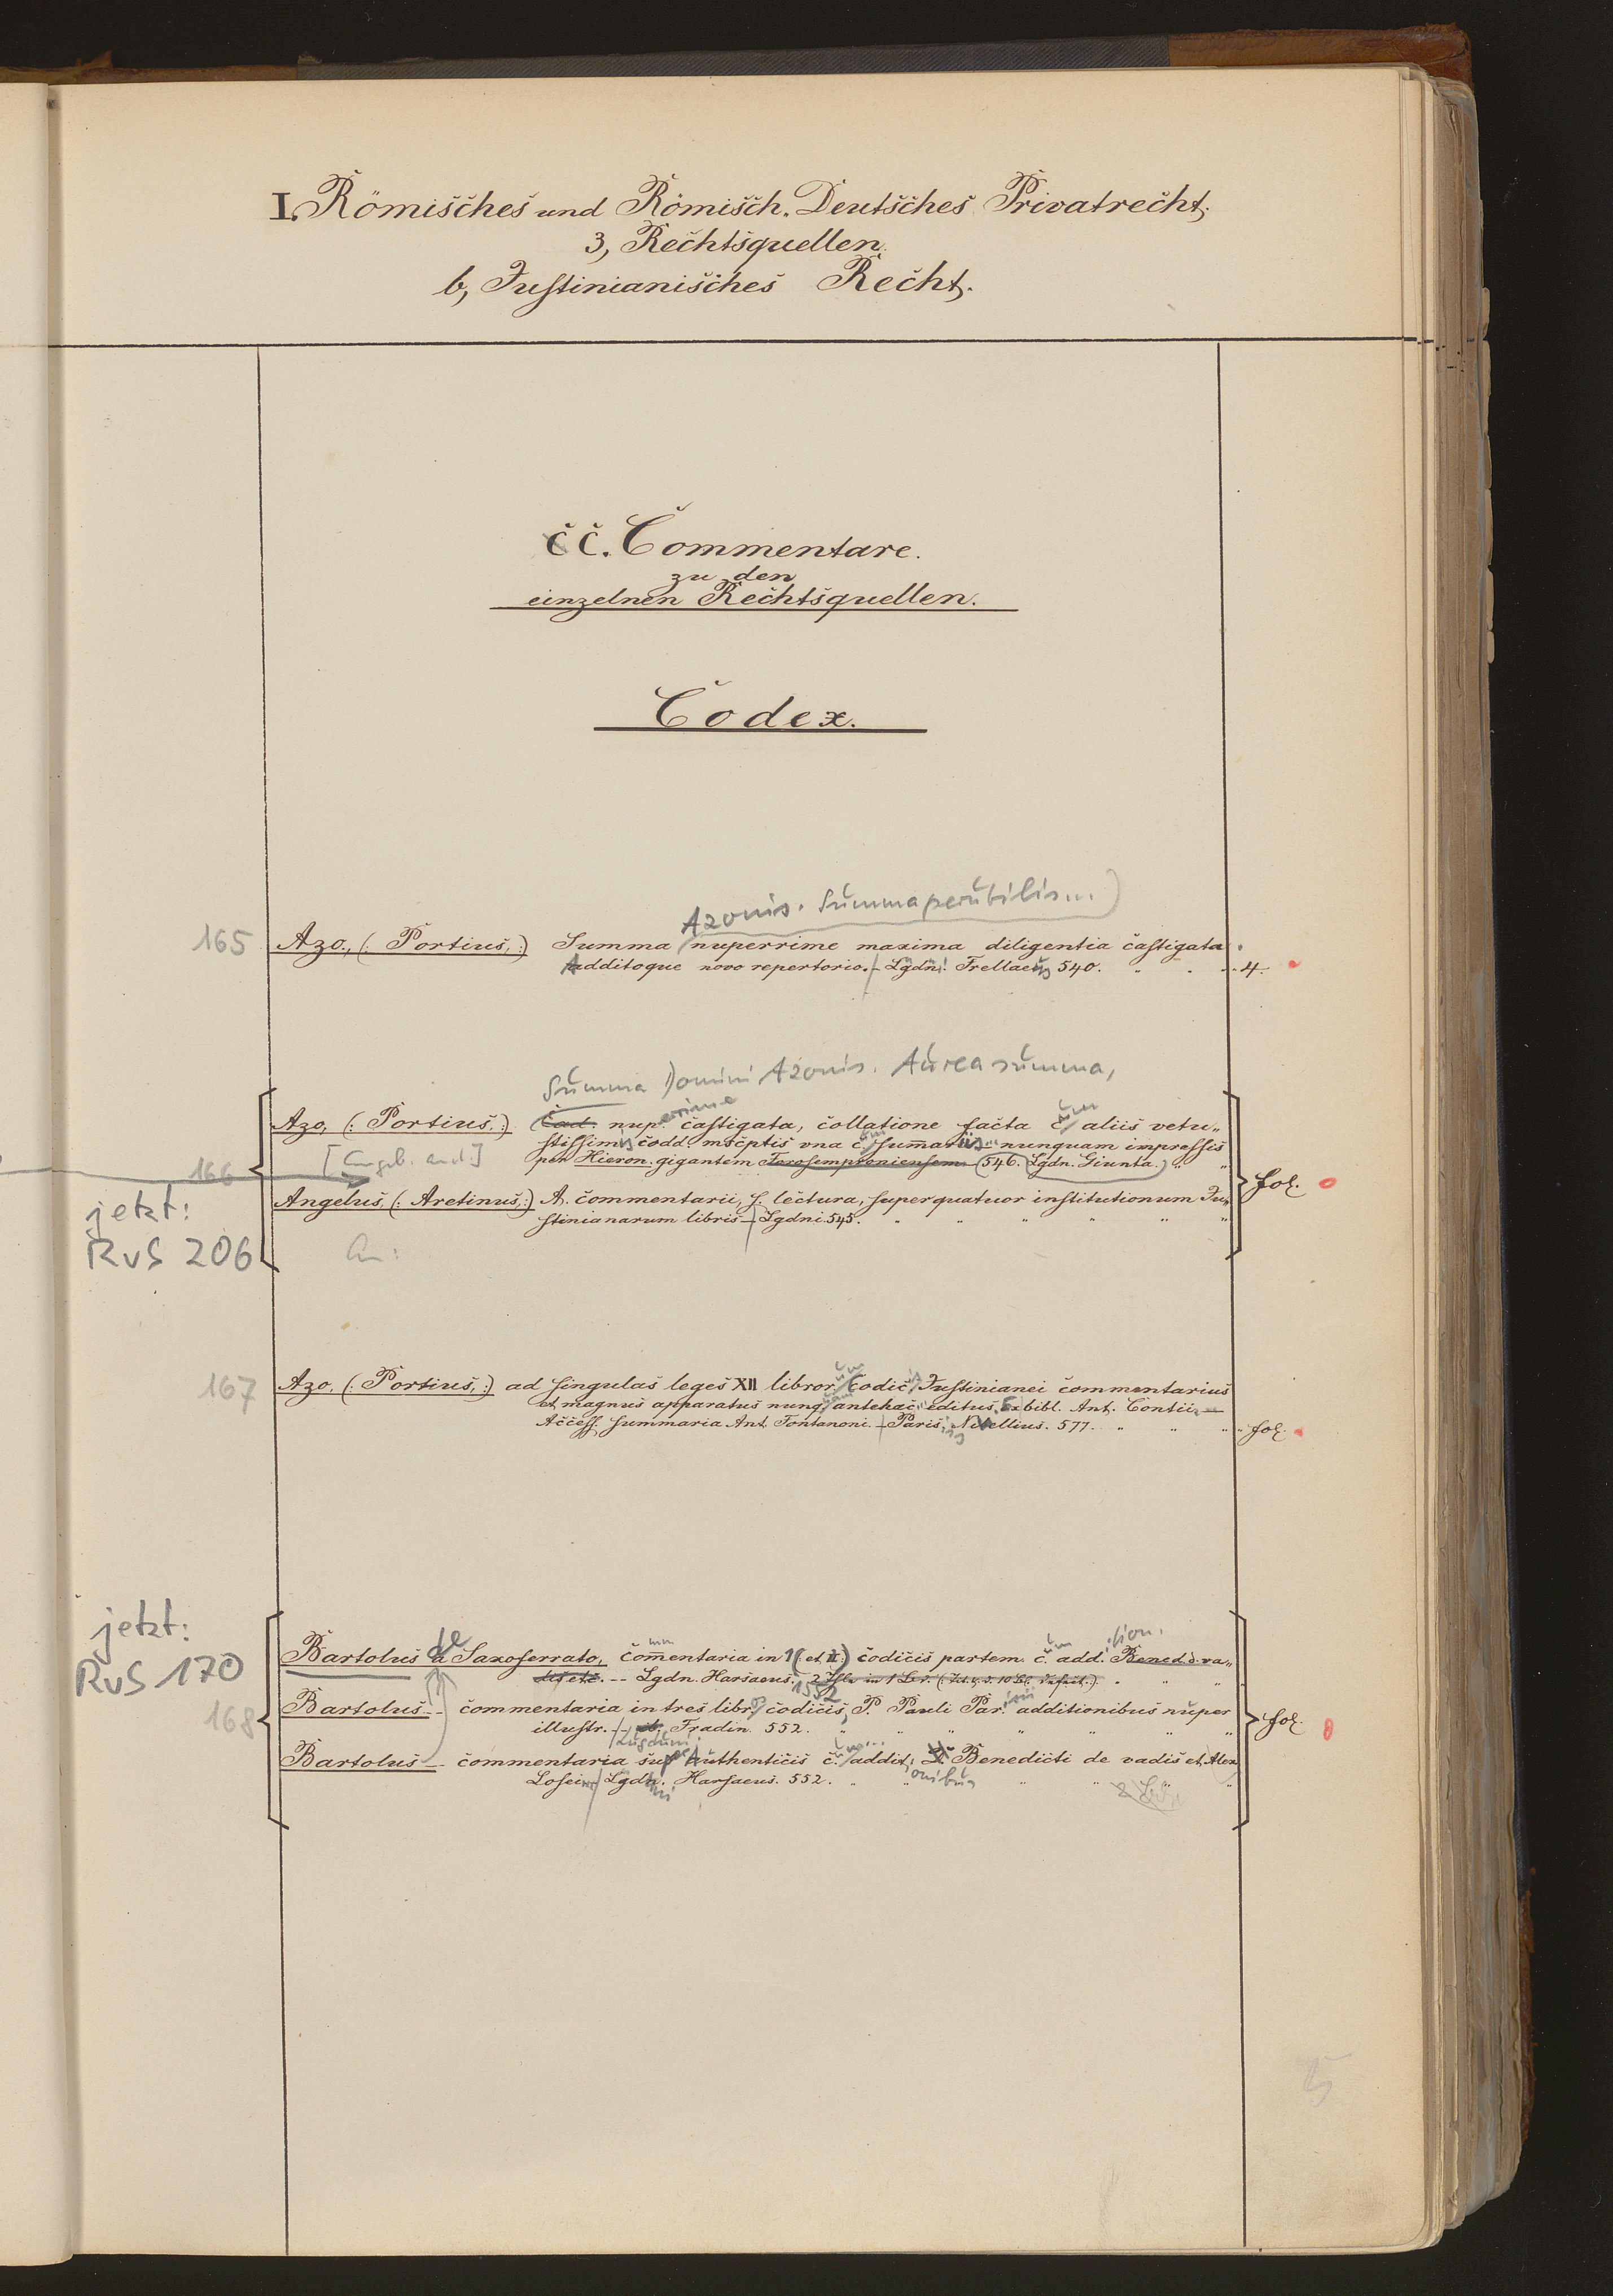 I, Römisches und Römisch. Deutsches Privatrecht,
3, Rechtsquellen.
b, Justinianisches Recht.
cc. Commentare.
zu den
einzelnen Rechtsquellen.
Codex.
Azonis. Summa perutilis...)
165 Azo., (: Portius, :) Summa nuperrime maxima diligentia castigata.
Additoque novo repertorio. - Lgdni. Frellaeus 540. " . . 4.
Summa Domini Azonis. Aurea summa,
Azo, (: Portius, :) Cad. nup.errime castigata, collatione facta cum aliis vetu„
stissimis codd. mscptis vna cum summariis nunquam impressis
[Angeb. and.] per Hieron. gigantem Forosemproniensem (546. Lgdn. Giunta.) " "
166 fol.
jetzt:
RvS 206
Angelus, (: Aretinus, :) A. commentarii, s. lectura, super quatuor institutionum Ju„
stinianarum libris - Lgdni. 545. " " " " " "
An:
167 Azo, (: Portius, :) ad singulas leges XII librorum Codicis Justinianei commentarius
et magnus apparatus nunquam antehac editus. Ex bibl. Ant. Contii. —
Access. summaria Ant. Fontanoni. - Parisiis, Nivellius. 577. " " " fol.
jetzt:
RvS 170
Bartolus a de Saxoferrato, commentaria in 1 (et II.) codicis partem. cum add.ition. Bened. d. va„
dis etc. -- Lgdn. Harsaeus. 1552 . " "
168 Bartolus -- commentaria in tres libros codicis, P. Pauli Par.isii additionibus nuper
illustr. - Lugduni Fradin. 552. " " " " " " fol.
Bartolus -- commentaria super Authenticis cum addit.onibus Benedicti de vadis et Alex
Losei. Lgdni. Harsaeus. 552. " " " " "